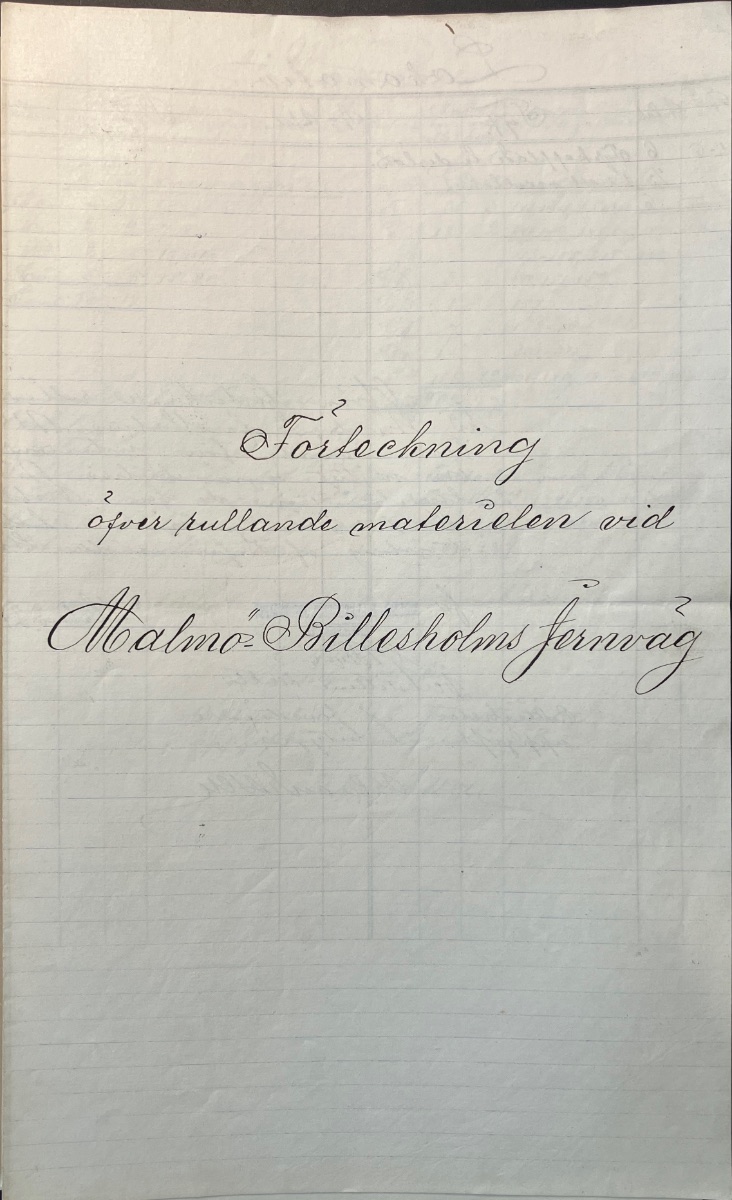 Förteckning
öfver rullande materielen vid
Malmö=Billesholms Jernväg